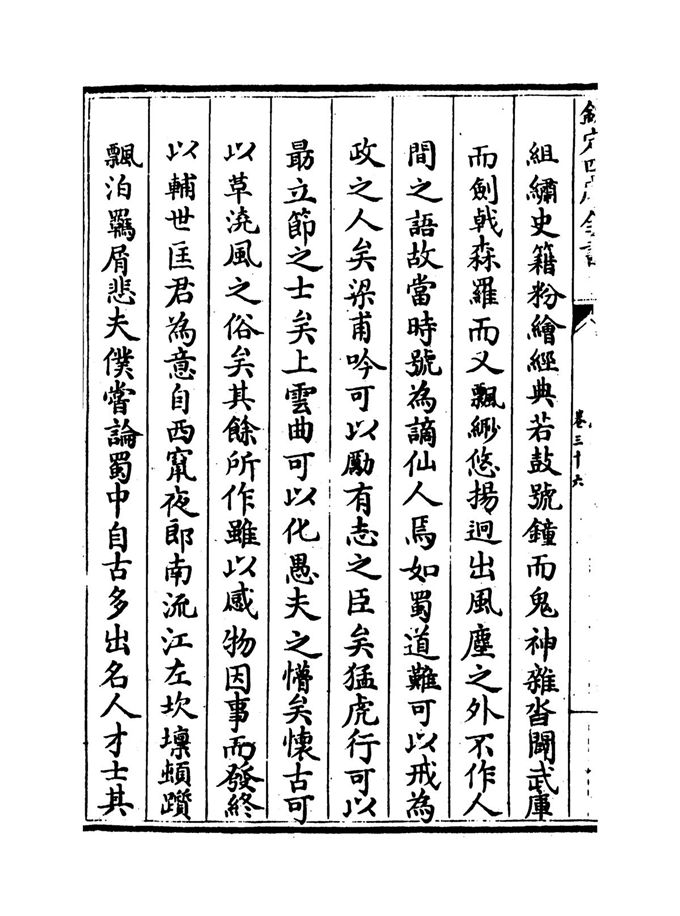 欽定四庫全書
卷三十六
組繡史籍粉繪經典若鼓號鐘而鬼神雜沓闢武庫
而劍戟森羅而又飄緲悠揚迥出風塵之外不作人
間之語故當時號為謫仙人焉如蜀道難可以戒為
政之人矣梁甫吟可以勵有志之臣矣猛虎行可以
勗立節之士矣上雲曲可以化愚夫之懵矣懷古可
以草澆風之俗矣其餘所作雖以感物因事而發終
以輔世匡君為意自西竄夜郎南流江左坎壈頓躓
飄泊羈屑悲夫僕嘗論蜀中自古多出名人才士其